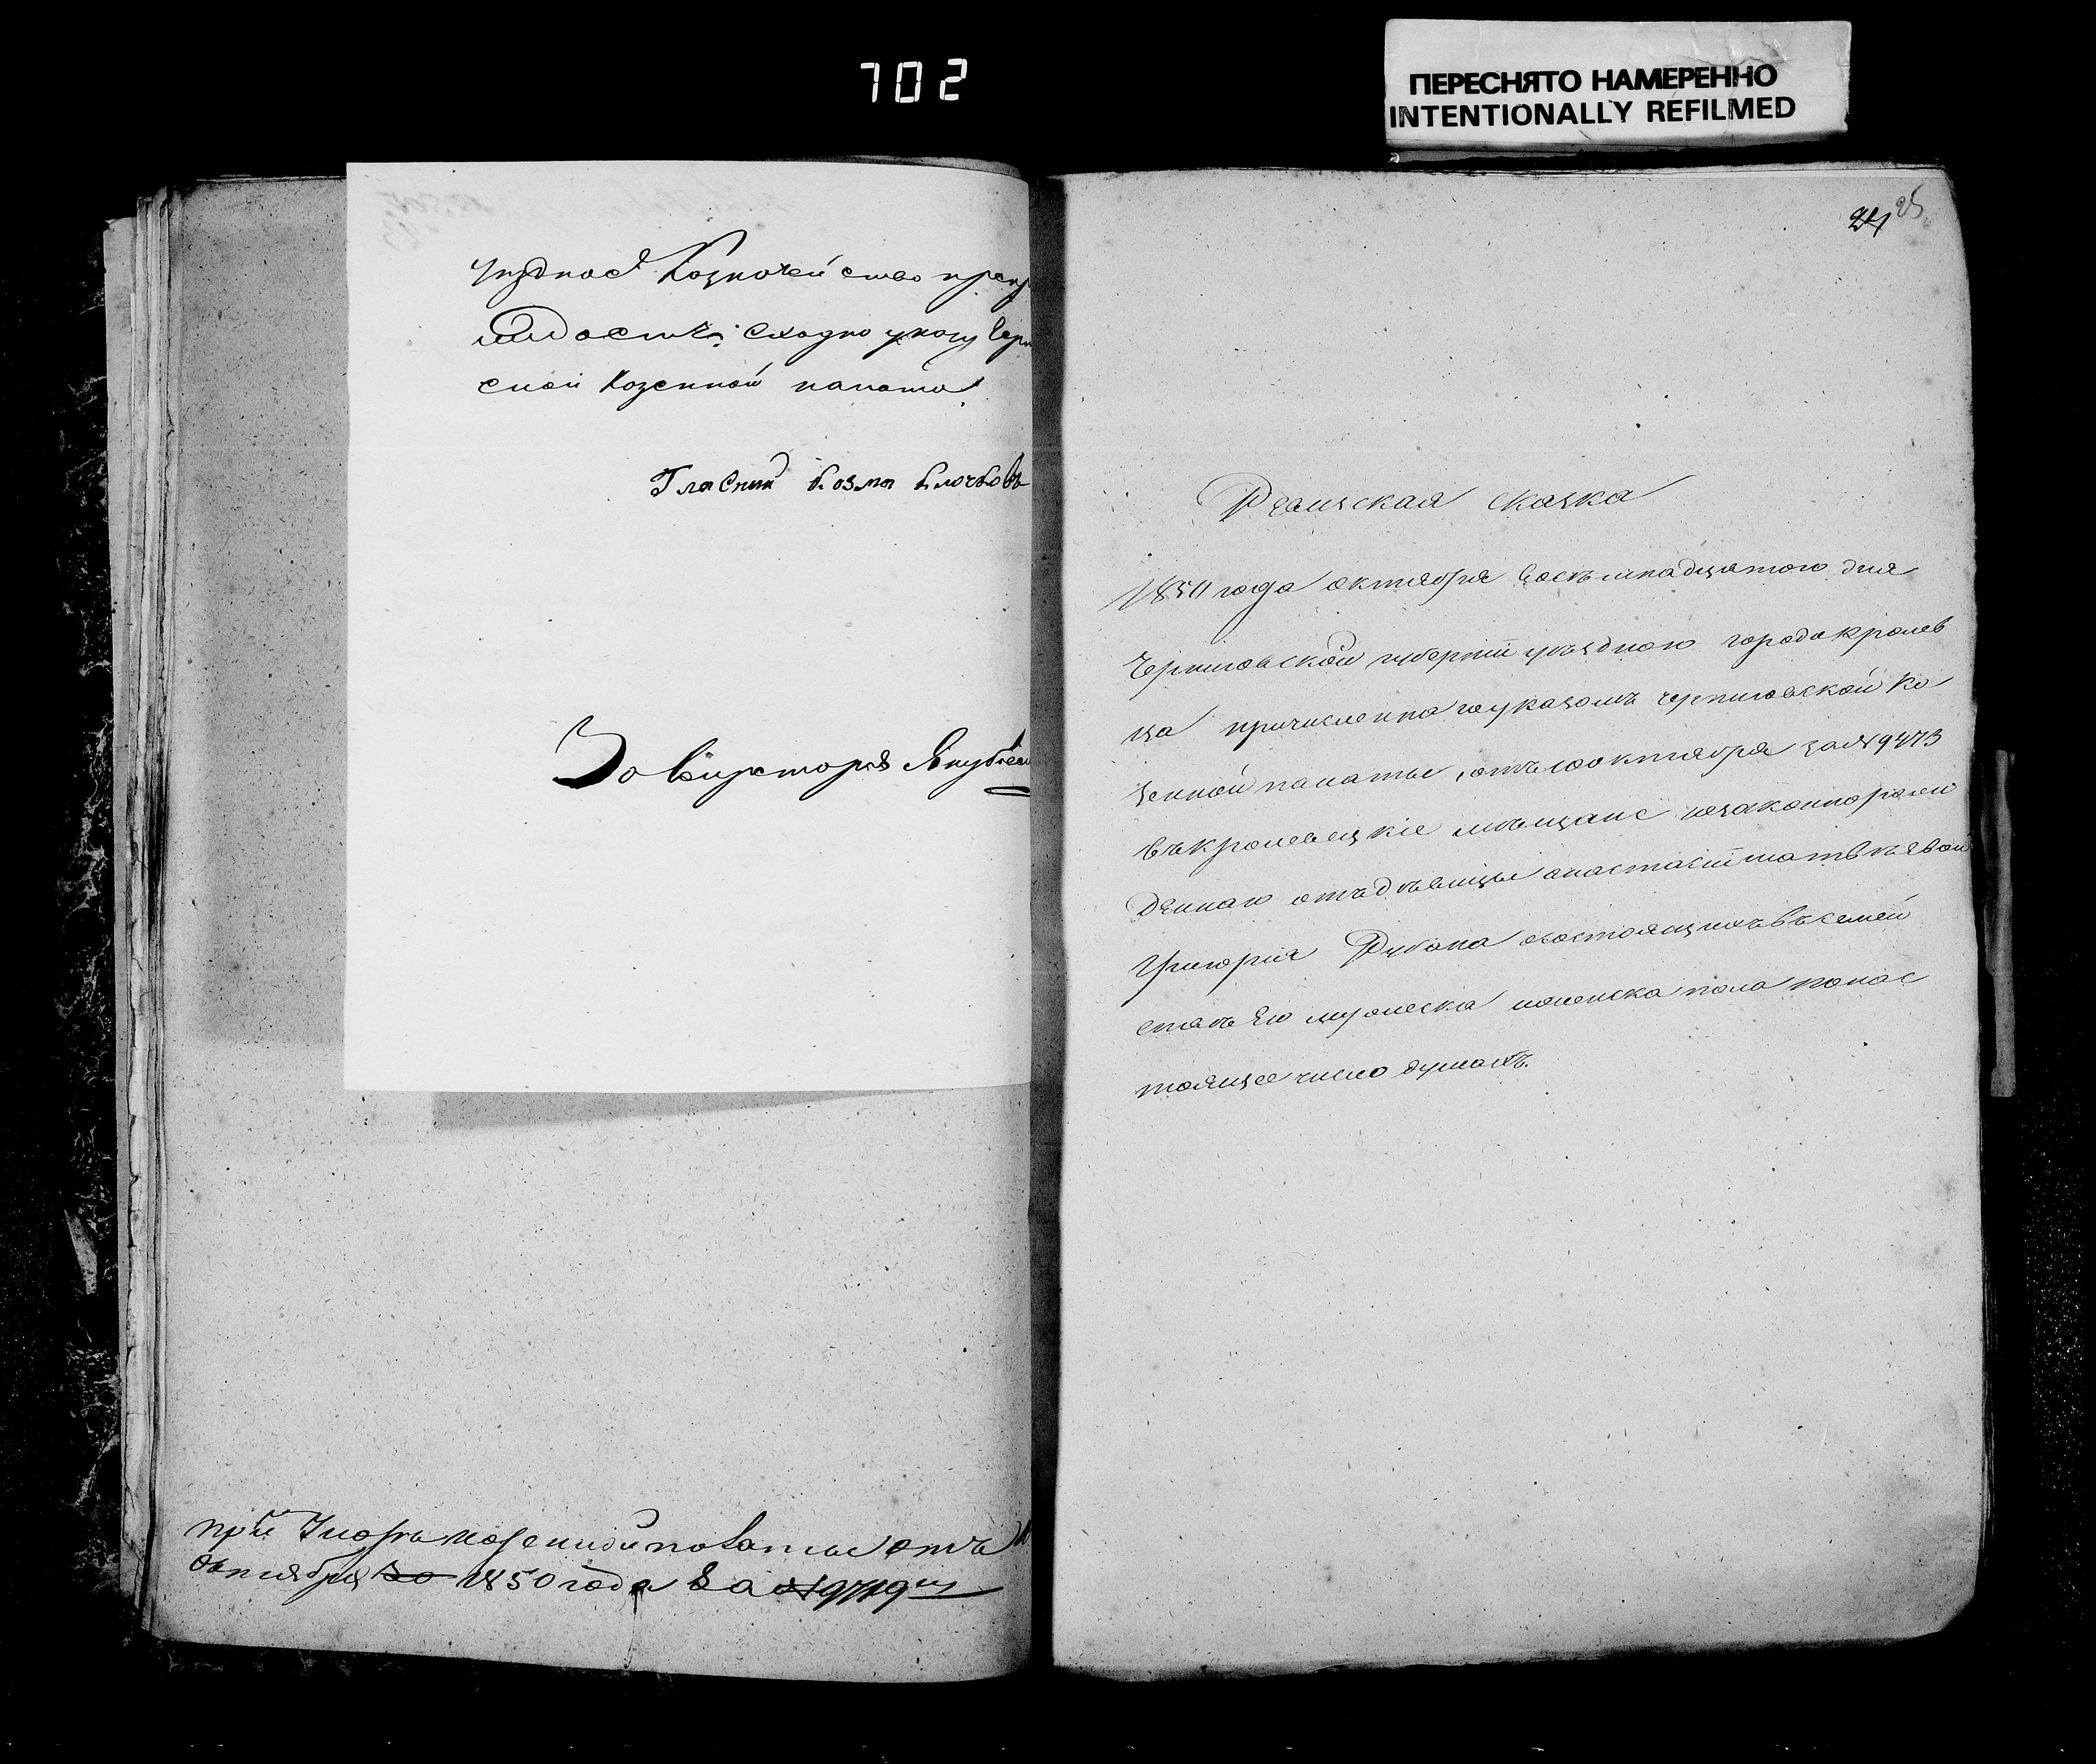 702
ПЕРЕСНЯТО НАМЕРЕННО
INTENTIONALLY REFILMED
уѣздное Казначейство
сходно указу
ской Казенной палаты
Гласный Козма Клочковъ
За Секретаря
при Указѣ Казенной палаты отъ
октября 1850 года за № 9719
24 25
Ревизская сказка
1850 года октября восемнадцатого дня
Черниговской губерніи уѣздного города кролев
ца причисленного указомъ черниговской Ка
зенной палаты, отъ 10 октября за № 9473
въ кролевецкіе мѣщане незаконнорож
денного отъ дѣвицы анастасіи матвѣевой
Григорія состоящихъ въ семей
ствѣ его мужеска и женска пола по нас
тоящее число душахъ.